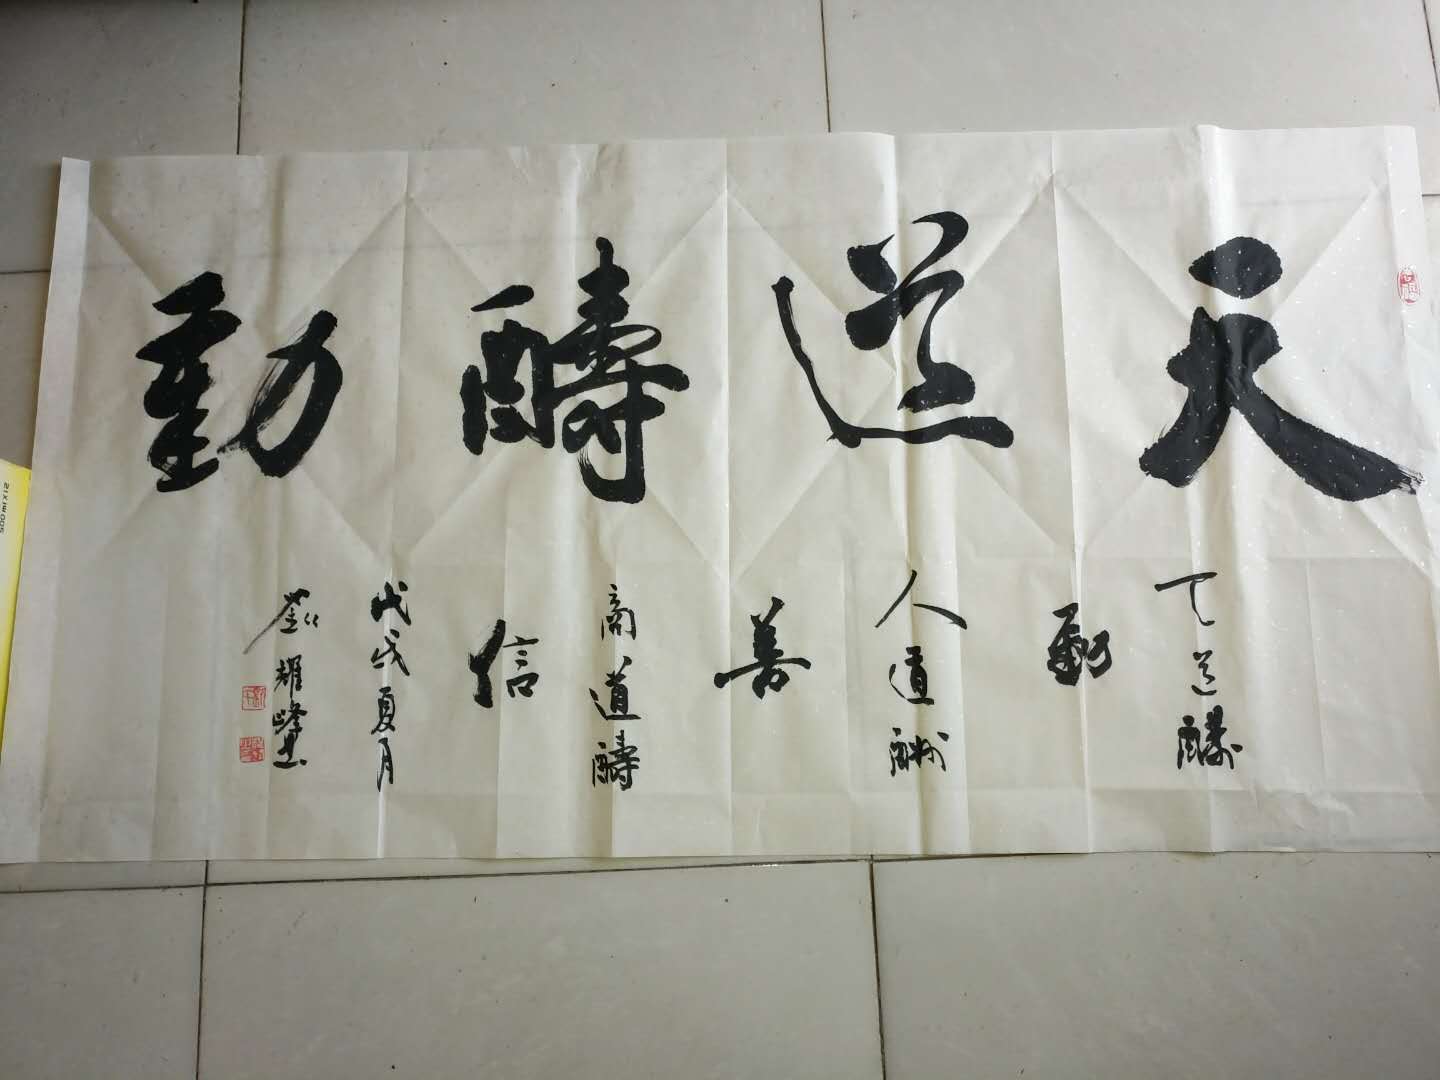 天道酬勤
天道酬
勤
人道酬
善
商道酬
信
戊戌夏月
劉耀峰书
500mlX12